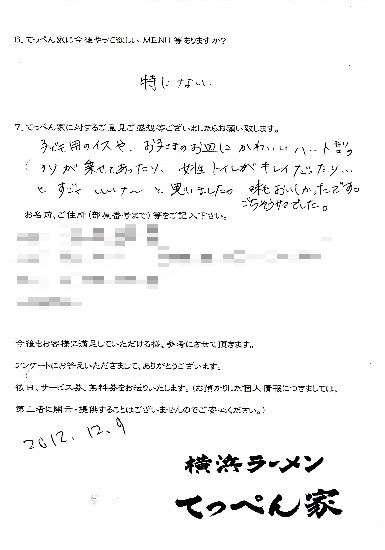 6. てっぺん家に今後やって欲しい MENU 等ありますか?
特にない
7. てっぺん家に対するご意見ご感想等ございましたらお願い致します。
子ども用のイスや、お子さまのお皿に かわいい ハート
ノリが乗せてあったり、女性トイレがキレイだったり…
と すごく いいなー と思いました。 味もおいしかったです。
ごちそうさまでした。
お名前、ご住所(部屋番号まで)等をご記入下さい。
今後もお客様に満足していただける様、参考にさせて頂きます。
アンケートにお答えいただきまして、ありがとうございます。
後日、サービス券、無料券をお送りいたします。(お預かりした個人情報につきましては、
第三者に開示・提供することはございませんのでご安心ください。)
2012. 12. 9
横浜ラーメン
てっぺん家